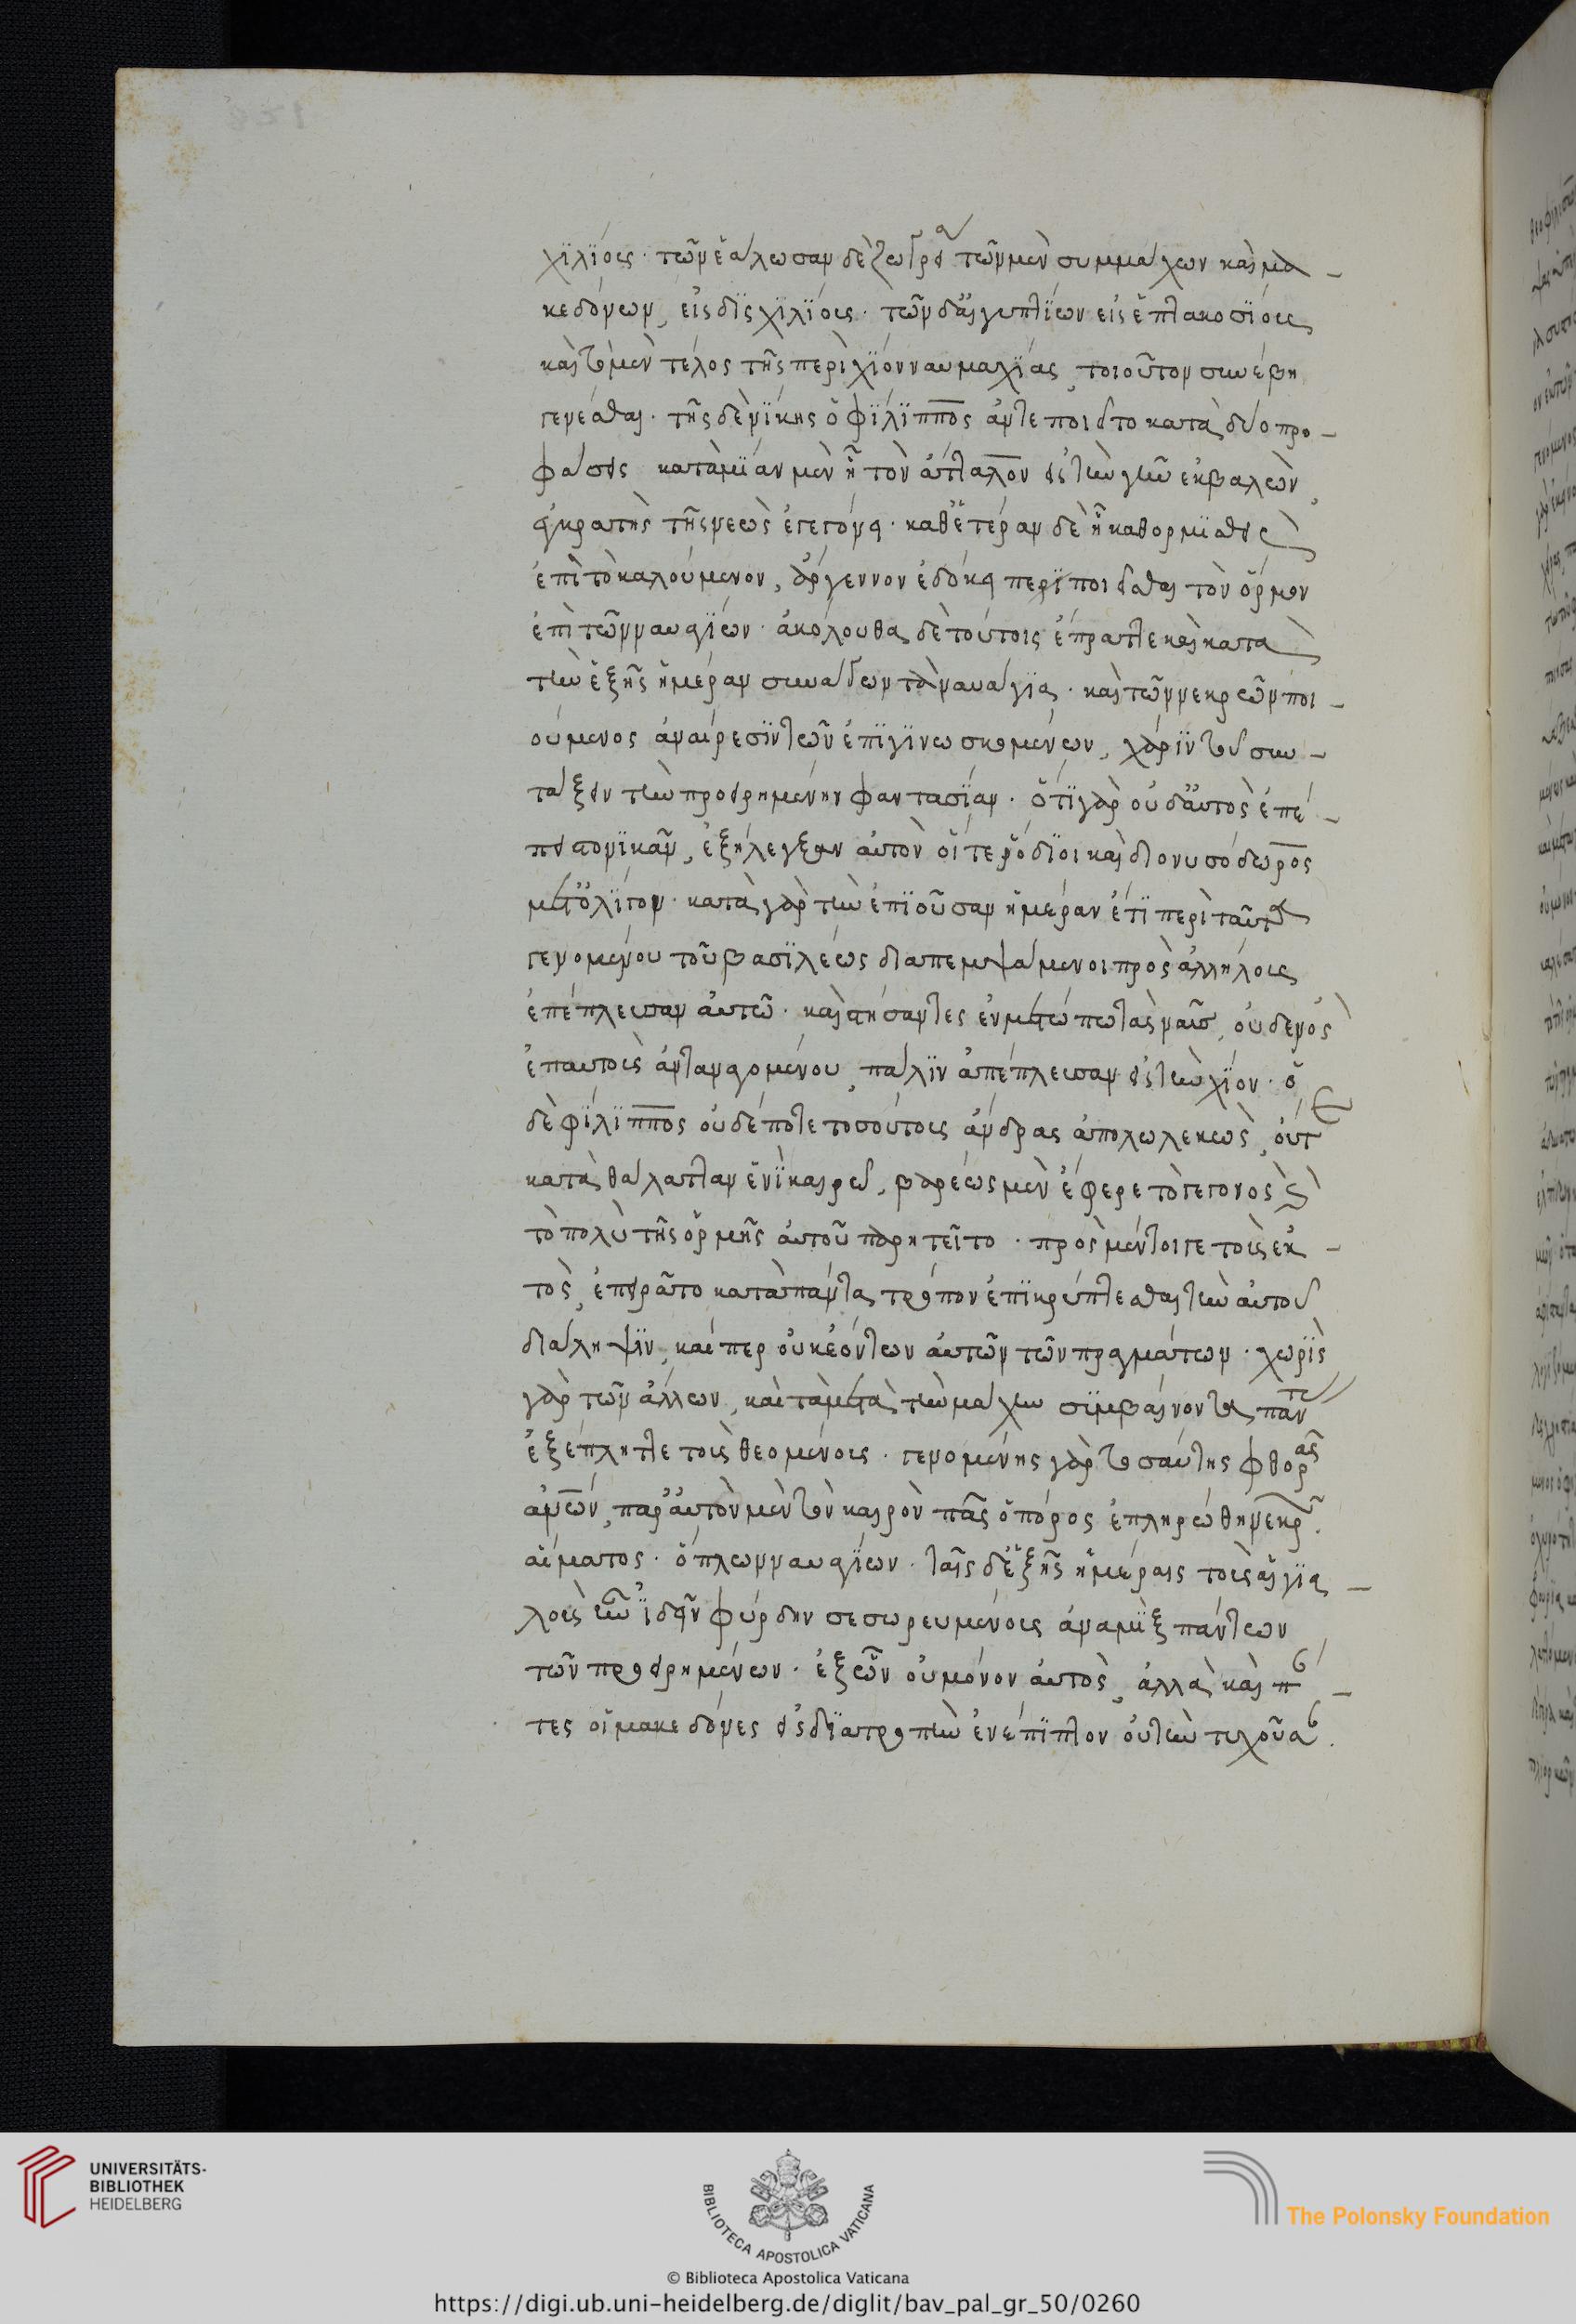 χϊλίους· τῶν ἑάλωσαν δὲ ζωγρία τῶν μὲν συμμάχων καὶ μα-
κεδόνων, εἰς δϊςχϊλίους· τῶν δ' αἰγυπτίων εἰς ἑπτακοσίους
καὶ τὸ μὲν τέλος τῆς περὶ χίον ναυμαχίας, τοιοῦτον συνέβη
γενέσθαι. τῆς δὲ νίκης ὁ φίλιππος ἀντεποιεῖτο κατὰ δύο προ-
φάσεις κατὰ μίαν μὲν ἧ τὸν ἄτταλον εἰς τὴν γῆν ἐκβαλὼν,
ἐγκρατὴς τῆς νεὼς ἐγεγόνει· καθ' ἑτέραν δὲ ἧ καθορμισθεὶς
ἐπὶ τὸ καλούμενον, ἄργεννον ἐδόκει περϊποιεῖσθαι τὸν ὅρμον
ἐπὶ τῶν ναυαγίων· ἀκόλουθα δὲ τούτοις ἔπραττε καὶ κατὰ
τὴν ἑξῆς ἡμέραν συνάγων τὰ ναυάγια. καὶ τῶν νεκρῶν ποι-
ούμενος ἀναίρεσιν τῶν ἐπιγινωσκομένων, χάριν τοῦ συν-
τάξειν τὴν προειρημένην φαντασίαν. ὅτι γὰρ οὐδ' αὐτὸς ἐπέ-
πειστο νικᾶν, ἐξήλεγξαν αὐτὸν οἵ τε ῥόδιοι καὶ διονυσόδωρος
μετ' ὀλίγον· κατὰ γὰρ τὴν ἐπιοῦσαν ἡμέραν ἔτι περὶ ταῦτα
γενομένου τοῦ βασιλέως διαπεμψάμενοι πρὸς ἀλλήλους
ἐπέπλευσαν αὐτῶ· καὶ στήσαντες ἐν μετώπω τὰς ναῦς, οὐδενὸς
ἐπ' αὐτοὺς ἀνταναγομένου, πάλιν ἀπέπλευσαν εἰς τὴν χίον. ὁ
δὲ φίλιππος οὐδέποτε τοσούτους ἄνδρας ἀπολωλεκὼς, οὔτε
κατὰ θάλατταν ἑνὶ καιρῶ, βαρέως μὲν ἔφερε τὸ γεγονὸς καὶ
τὸ πολὺ τῆς ὁρμῆς αὐτοῦ παρητεῖτο. πρὸς μέντοιγε τοὺς ἐκ-
τὸς, ἐπειρᾶτο κατὰ πάντα τρόπον ἐπικρύπτεσθαι τὴν αὑτοῦ
διάληψϊν, καίπερ οὐκ ἐόντων αὐτῶν τῶν πραγμάτων. χωρὶς
γὰρ τῶν ἄλλων, καὶ τὰ μετὰ τὴν μάχην συμβαίνοντα πάντας
ἐξέπληττε τοὺς θεομένους. γενομένης γὰρ τοσαύτης φθορᾶς
ἀνθρώπων, παρ' αὐτὸν μὲν τὸν καιρὸν πᾶς ὁ πόρος ἐπληρώθη νεκρῶν.
αἵματος. ὅπλων ναυαγίων. ταῖς δ' ἑξῆς ἡμέραις τοὺς αἰγια-
λοὺς ἦν ἰδεῖν φύρδην σεσωρευμένους ἀναμϊξ πάντων
τῶν προειρημένων. ἐξ ὧν οὐ μόνον αὐτὸς, ἀλλὰ καὶ πάν-
τες οἱ μακεδόνες εἰς διατροπὴν ἐνέπιπτον οὐ τὴν τυχοῦσαν.
UNIVERSITÄTS-
BIBLIOTHEK
HEIDELBERG
BIBLIOTECA APOSTOLICA VATICANA
The Polonsky Foundation
© Biblioteca Apostolica Vaticana
https://digi.ub.uni-heidelberg.de/diglit/bav_pal_gr_50/0260